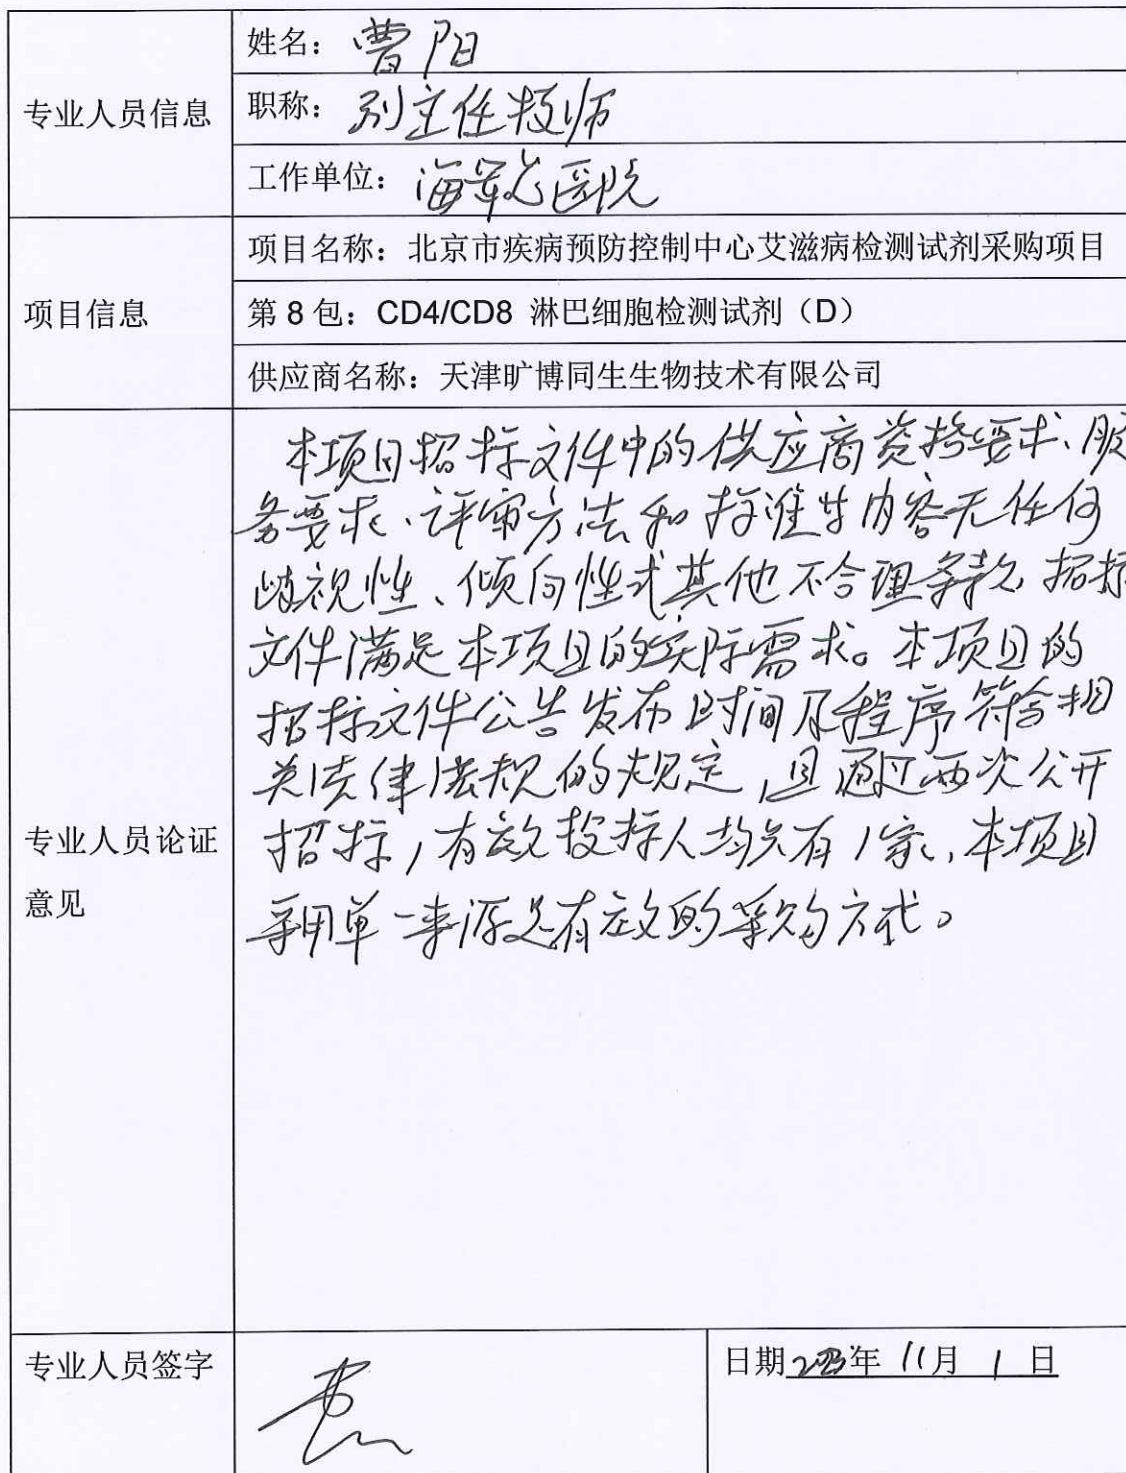 专业人员信息
姓名：曹阳
职称：副主任技师
工作单位：海军总医院
项目信息
项目名称：北京市疾病预防控制中心艾滋病检测试剂采购项目
第 8 包：CD4/CD8 淋巴细胞检测试剂（D）
供应商名称：天津旷博同生生物技术有限公司
专业人员论证
意见
本项目招标文件中的供应商资格要求、服
务要求、评审方法和标准等内容无任何
歧视性、倾向性或其他不合理条款，招标
文件满足本项目的实际需求。本项目的
招标文件公告发布时间及程序符合相
关法律法规的规定，且通过两次公开
招标，有效投标人均只有1家，本项目
采用单一来源是有效的采购方式。
专业人员签字
日期 2023年 11月 1 日